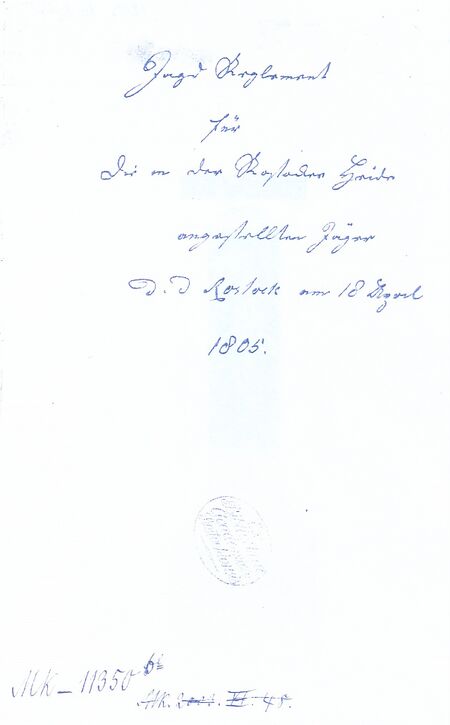 Jagd Reglement
für
die in der Rostocker Heide
angestellten Jäger
d. d Rostock am 18 April
1805.
MK – 11350
MK. III. 45.